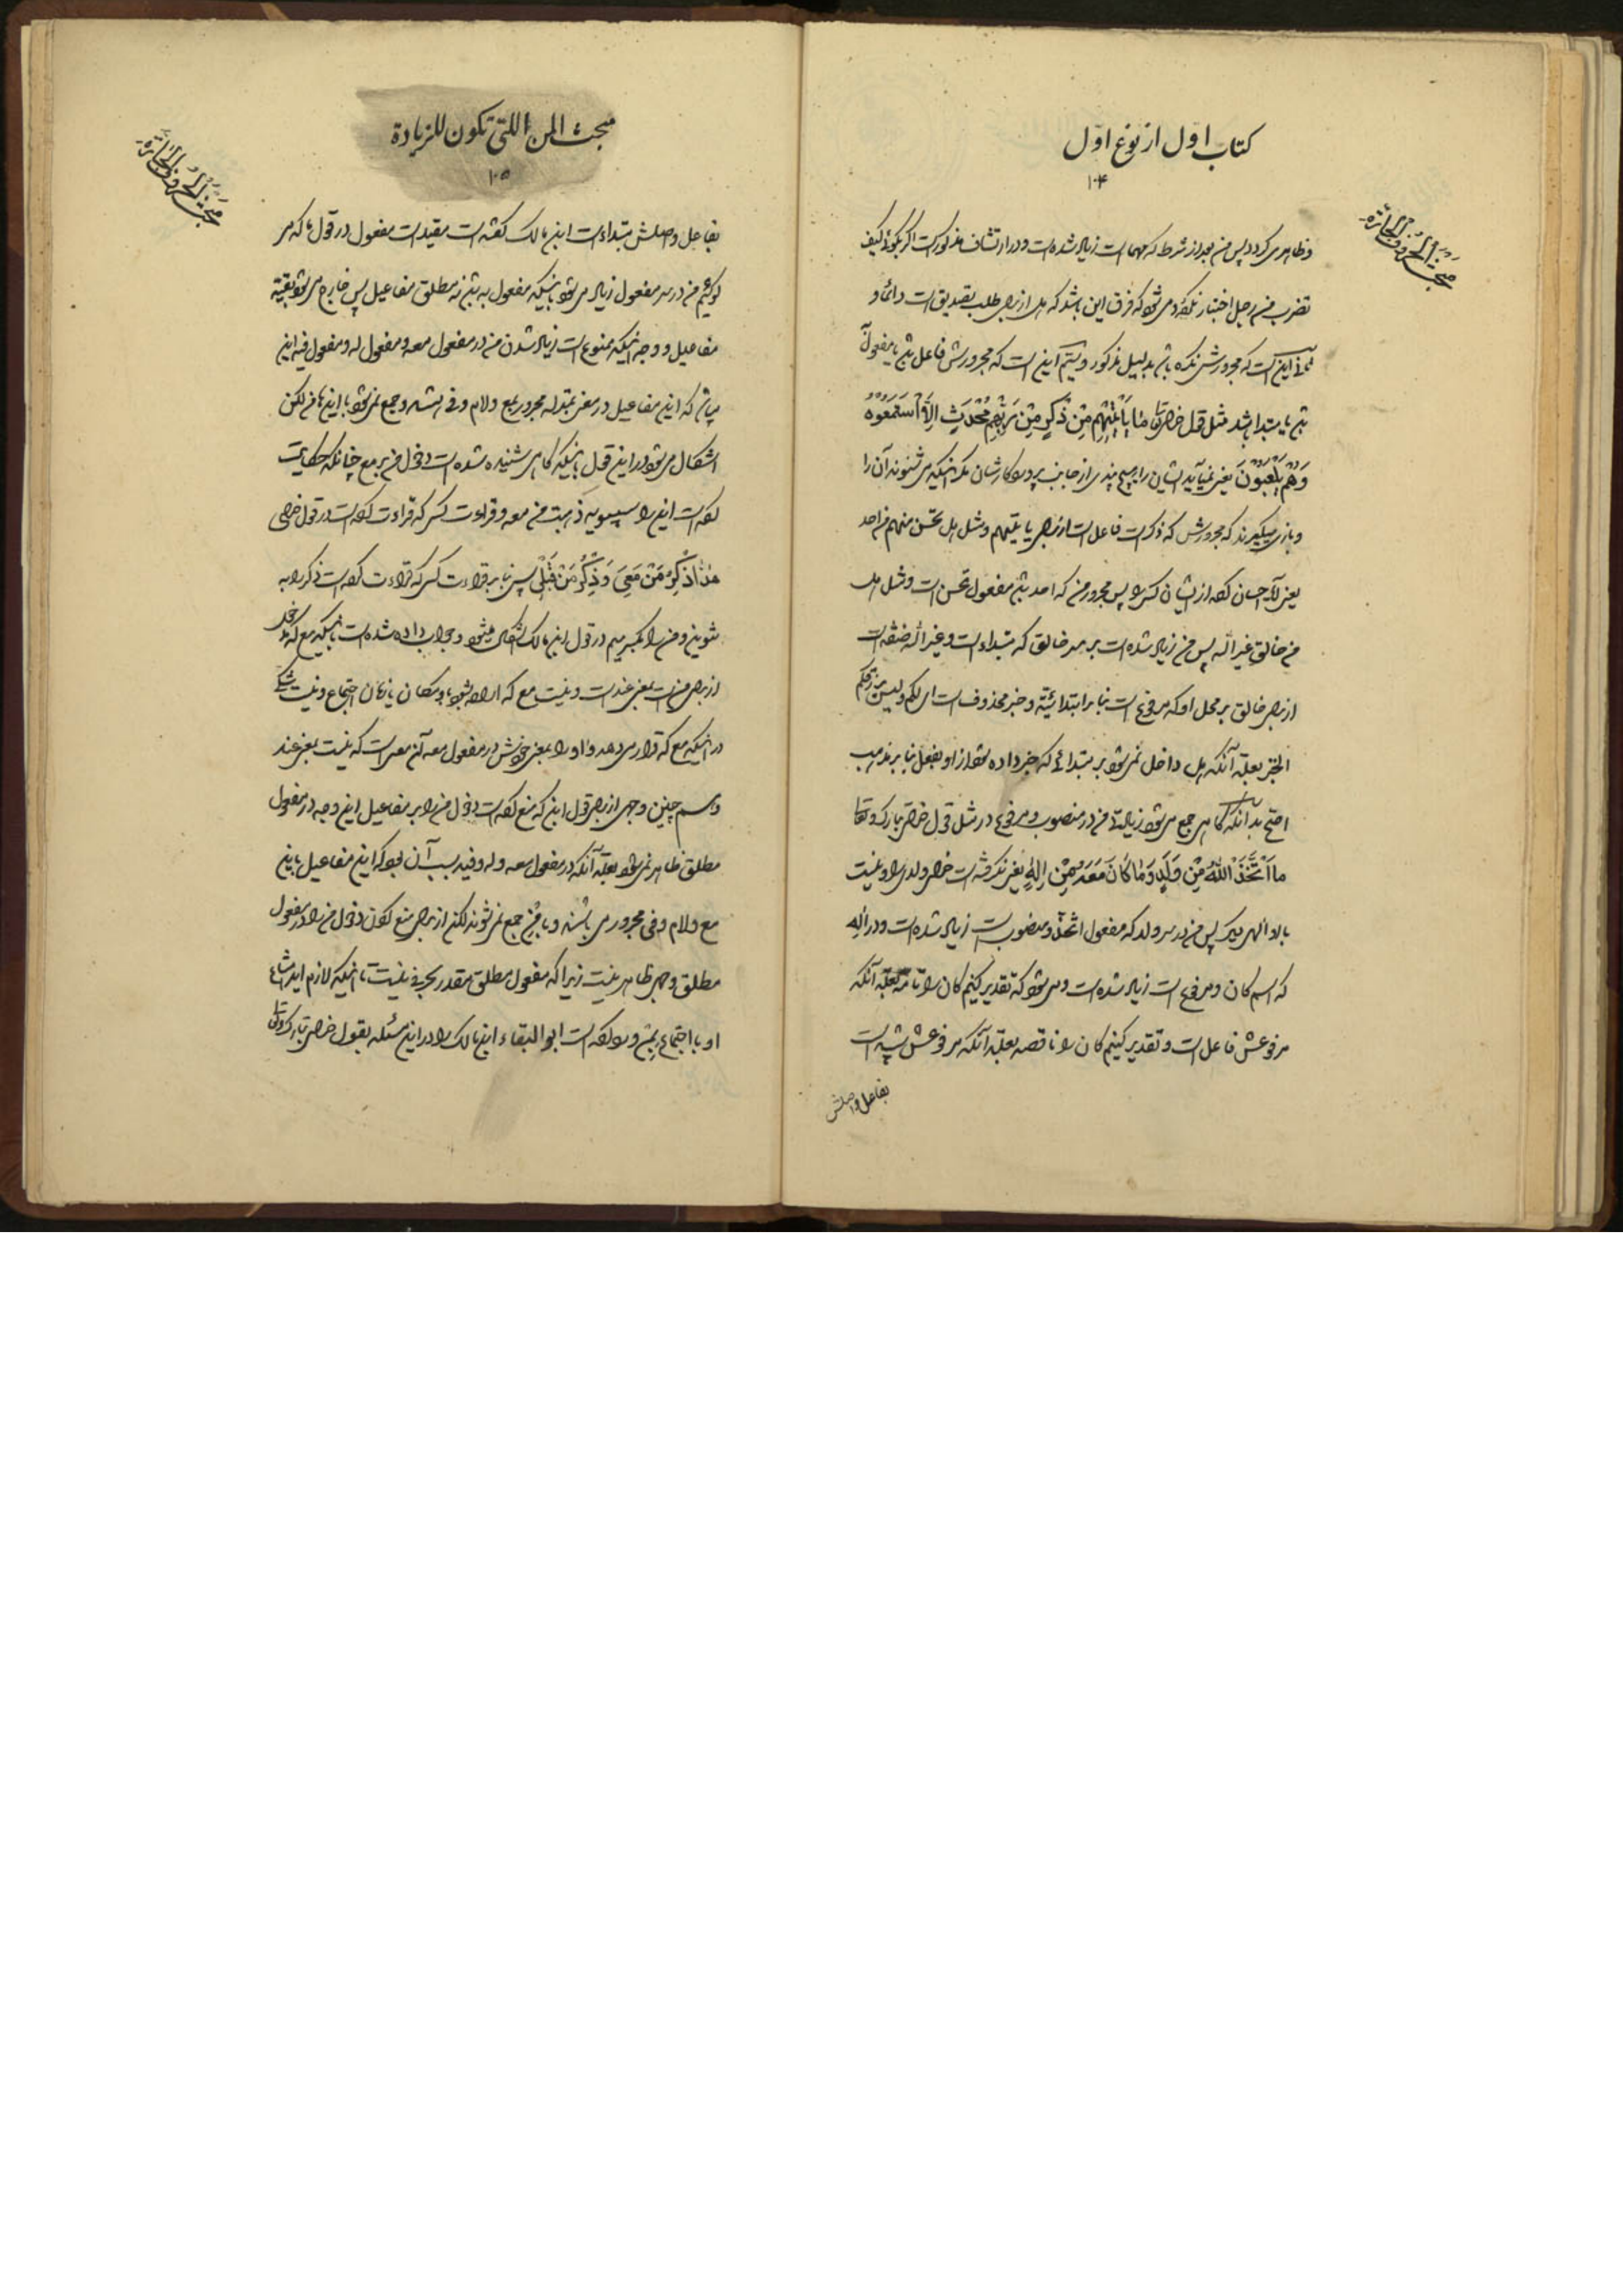 کتاب اول از نوع اول
۱۰۴
مبحث الحروف الجاره
و ظاهر می کردد پس من بعد از شرط که مهما است زیاد شده است و در ارتشاف مذکور است اکر بکوئی کیف
تضرب من رجل اختیار نکرد می شود که فرق این باشد که هل از برای طلب تصدیق است دائما و
ثانی این است که مجرورش نکره باشد بدلیل مذکور و سیم این است که مجرورش فاعل باشد یا مفعول
باشد یا مبتدا باشد مثل قول خدای تعالی مَا یَأْتِیهِم مِّن ذِکْرٍ مِّن رَّبِّهِم مُّحْدَثٍ إِلَّا اسْتَمَعُوهُ
وَهُمْ یَلْعَبُونَ یعنی نمی آید ایشان را هیچ پندی از جانب پروردکارشان مکر اینکه می شنوند آن را
و بازی میکیرند که مجرورش که ذکر است فاعل است از برای یاتیهم و مثل هل تحسن منهم من احد
یعنی آیا احسان کرده از ایشان کسی را پس مجرور من که احد باشد مفعول تحسن است و مثل هل
من خالق غیر الله پس من زیاد شده است بر سر خالق که مبتداء است و غیر الله صفة است
از برای خالق بر محل او که مرفوع است بنا بر ابتدائیة و خبر محذوف است ای لکم و لیس یرزقکم
الخبر بعلة آنکه هل داخل نمی شود بر مبتدائی که خبر داده شود از او بفعل بنا بر مذهب
اصح بدانکه کاهی جمع می شود زیادة من در منصوب و مرفوع در مثل قول خدای تبارک و تعالی
مَا اتَّخَذَ اللَّهُ مِن وَلَدٍ وَمَا کَانَ مَعَهُ مِنْ إِلَهٍ یعنی نکرفته است خدا ولدی را و نیست
با او الهی دیکر پس من در سر ولد که مفعول اتخذ و منصوب است زیاد شده است و در اله
که اسم کان و مرفوع است زیاد شده است و می شود که تقدیر کنیم کان را تامة بعلة آنکه
مرفوعش فاعل است و تقدیر کنیم کان را ناقصه بعلة آنکه مرفوعش شبیه است
بفاعل و اصلش
مبحث المن اللتی تکون للزیادة
۱۰۵
مبحث الحروف الجاره
بفاعل و اصلش مبتداء است ابن مالک کفته است مقید است مفعول در قول ما که می
کوئیم من در سر مفعول زیاد می شود باینکه مفعول به باشد نه مطلق مفاعیل پس خارج می شود بقیة
مفاعیل و وجه اینکه ممنوع است زیاد شدن من در مفعول معه و مفعول له و مفعول فیه این
میباشد که این مفاعیل در معنی بمنزله مجرور بمع و لام و فی هستند و جمع نمی شود با اینها من لکن
اشکال می شود در این قول باینکه کاهی شنیده شده است دخول من بر مع چنانکه حکایت
کرده است این را سیبویه ذهبت من معه و قراءت کسی که قراءت کرده است در قول خدای
هَذَا ذِکْرٌ مَن مَعِیَ وَذِکْرٌ مَن قَبْلِی پس بنا بر قراءت کسی که قراءت کرده است ذکر را به
تنوین و من را بکسر میم در قول ابن مالک اشکال میشود و جواب داده شده است باینکه مع که مدخول
از برای من است بمعنی عند است و نیست مع که اراده شود باو مکان یا زمان اجتماع و نیست شکی
در اینکه مع که قرار می دهند واو را بمعنی خودش در مفعول معه آن معی است که نیست بمعنی عند
و هم چنین وجهی از برای قول ابن که منع کرده است دخول من را بر مفاعیل این وجه در مفعول
مطلق ظاهر نمی شود بعلة آنکه در مفعول معه و له و فیه سبب آن بود که این مفاعیل باین
مع و لام و فی مجرور می باشند و با من جمع نمی شوند لکن از برای منع کردن دخول من را در مفعول
مطلق وجهی ظاهر نیست زیرا که مفعول مطلق مقدر بحرفی نیست تا اینکه لازم آید امتناع
او با اجتماع بمن و رد کرده است ابو البقاء ابن مالک را در این مسئله بقول خدای تبارک و تعالی